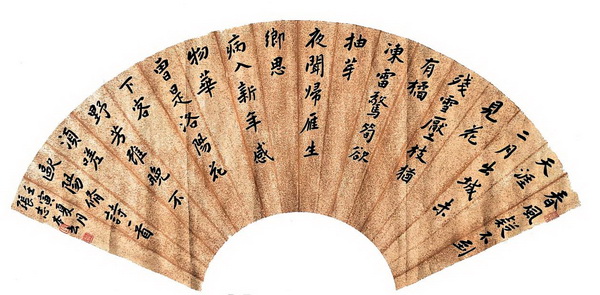 春風疑不到
天涯
二月出城未
見花
殘雪壓枝猶
有橘
凍雷驚筍欲
抽芽
夜聞歸雁生
鄉思
病入新年感
物華
曾是洛陽花
下客
野芳雖晚不
須嗟
歐陽脩詩一首
壬寅夏月
張志本書